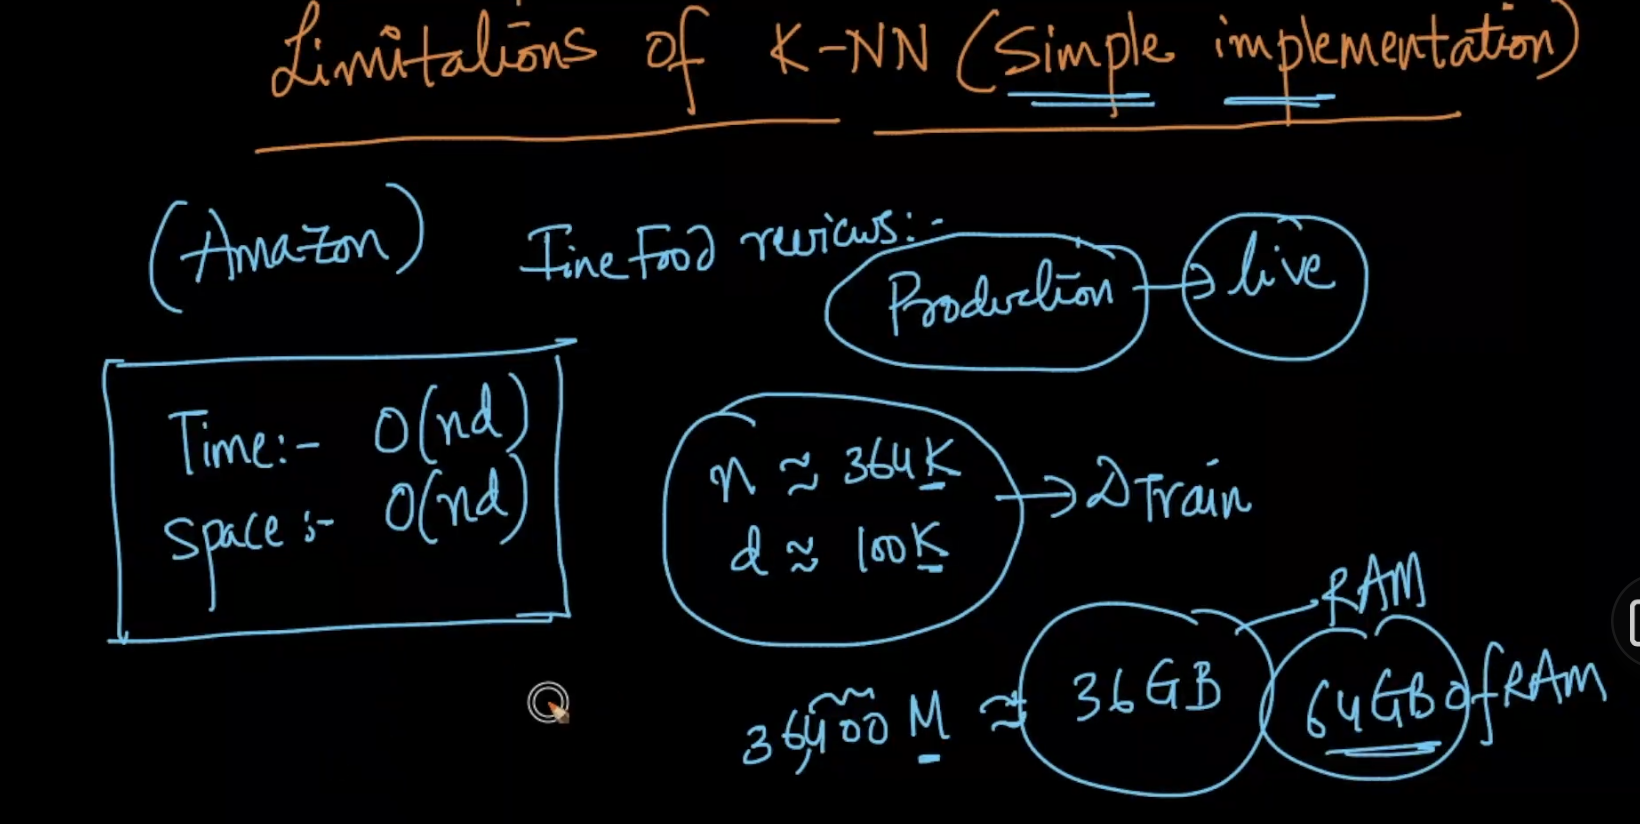 Limitations of K-NN (Simple implementation)
(Amazon) Fine Food reviews:-
Production → live
Time:- O(nd)
Space:- O(nd)
n ≈ 364K
d ≈ 100K
→ DTrain
RAM
36,400 M ≈ 36GB 64GB of RAM